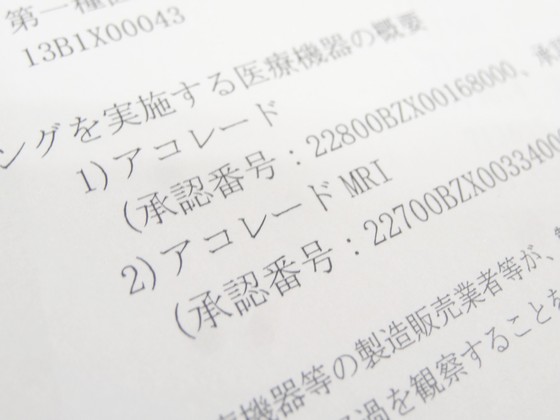 第一種
13B1X00043
ングを実施する医療機器の概要
1)アコレード
(承認番号：22800BZX00168000、承
2)アコレード MRI
(承認番号：22700BZX0033400
機器等の製造販売業者等が、
過を観察することを